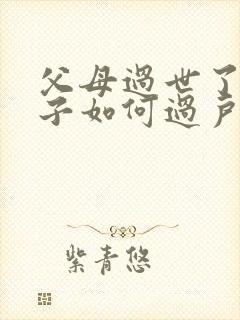 父母過世了
子如何過户
紫青悠